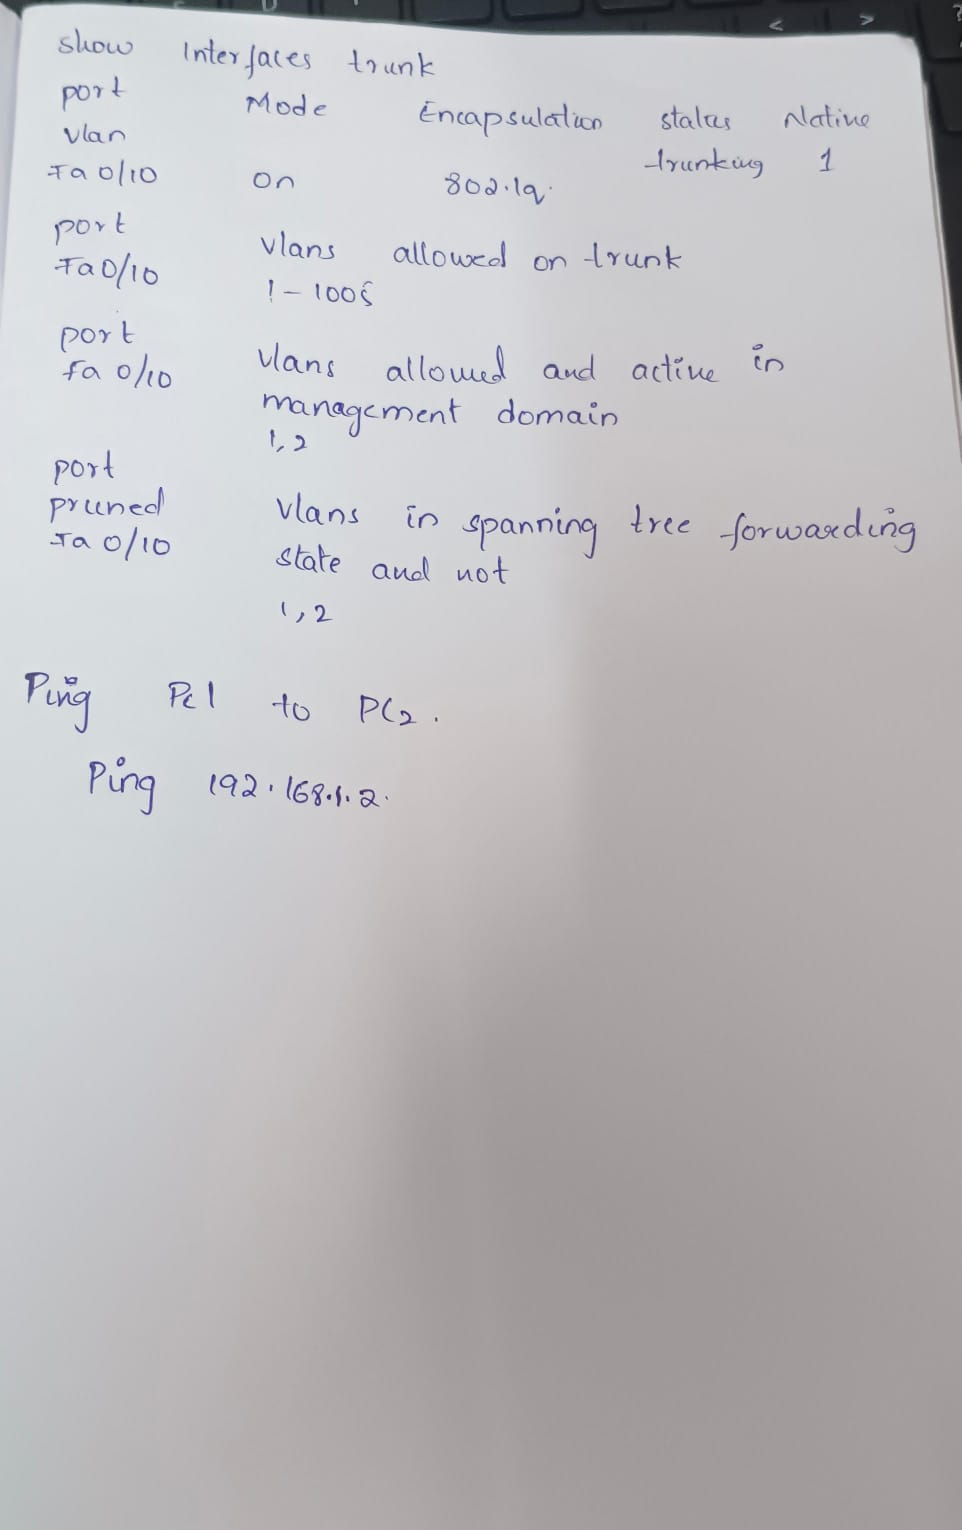 show Interfaces trunk
port Mode Encapsulation status Native
vlan
Fa 0/10 on 802.1q. trunking 1
port vlans allowed on trunk
Fa0/10 1-1005
port vlans allowed and active in
fa 0/10 management domain
1,2
port
pruned vlans in spanning tree forwarding
Fa 0/10 state and not
1,2
Ping Pc1 to PC2.
Ping 192.168.1.2.